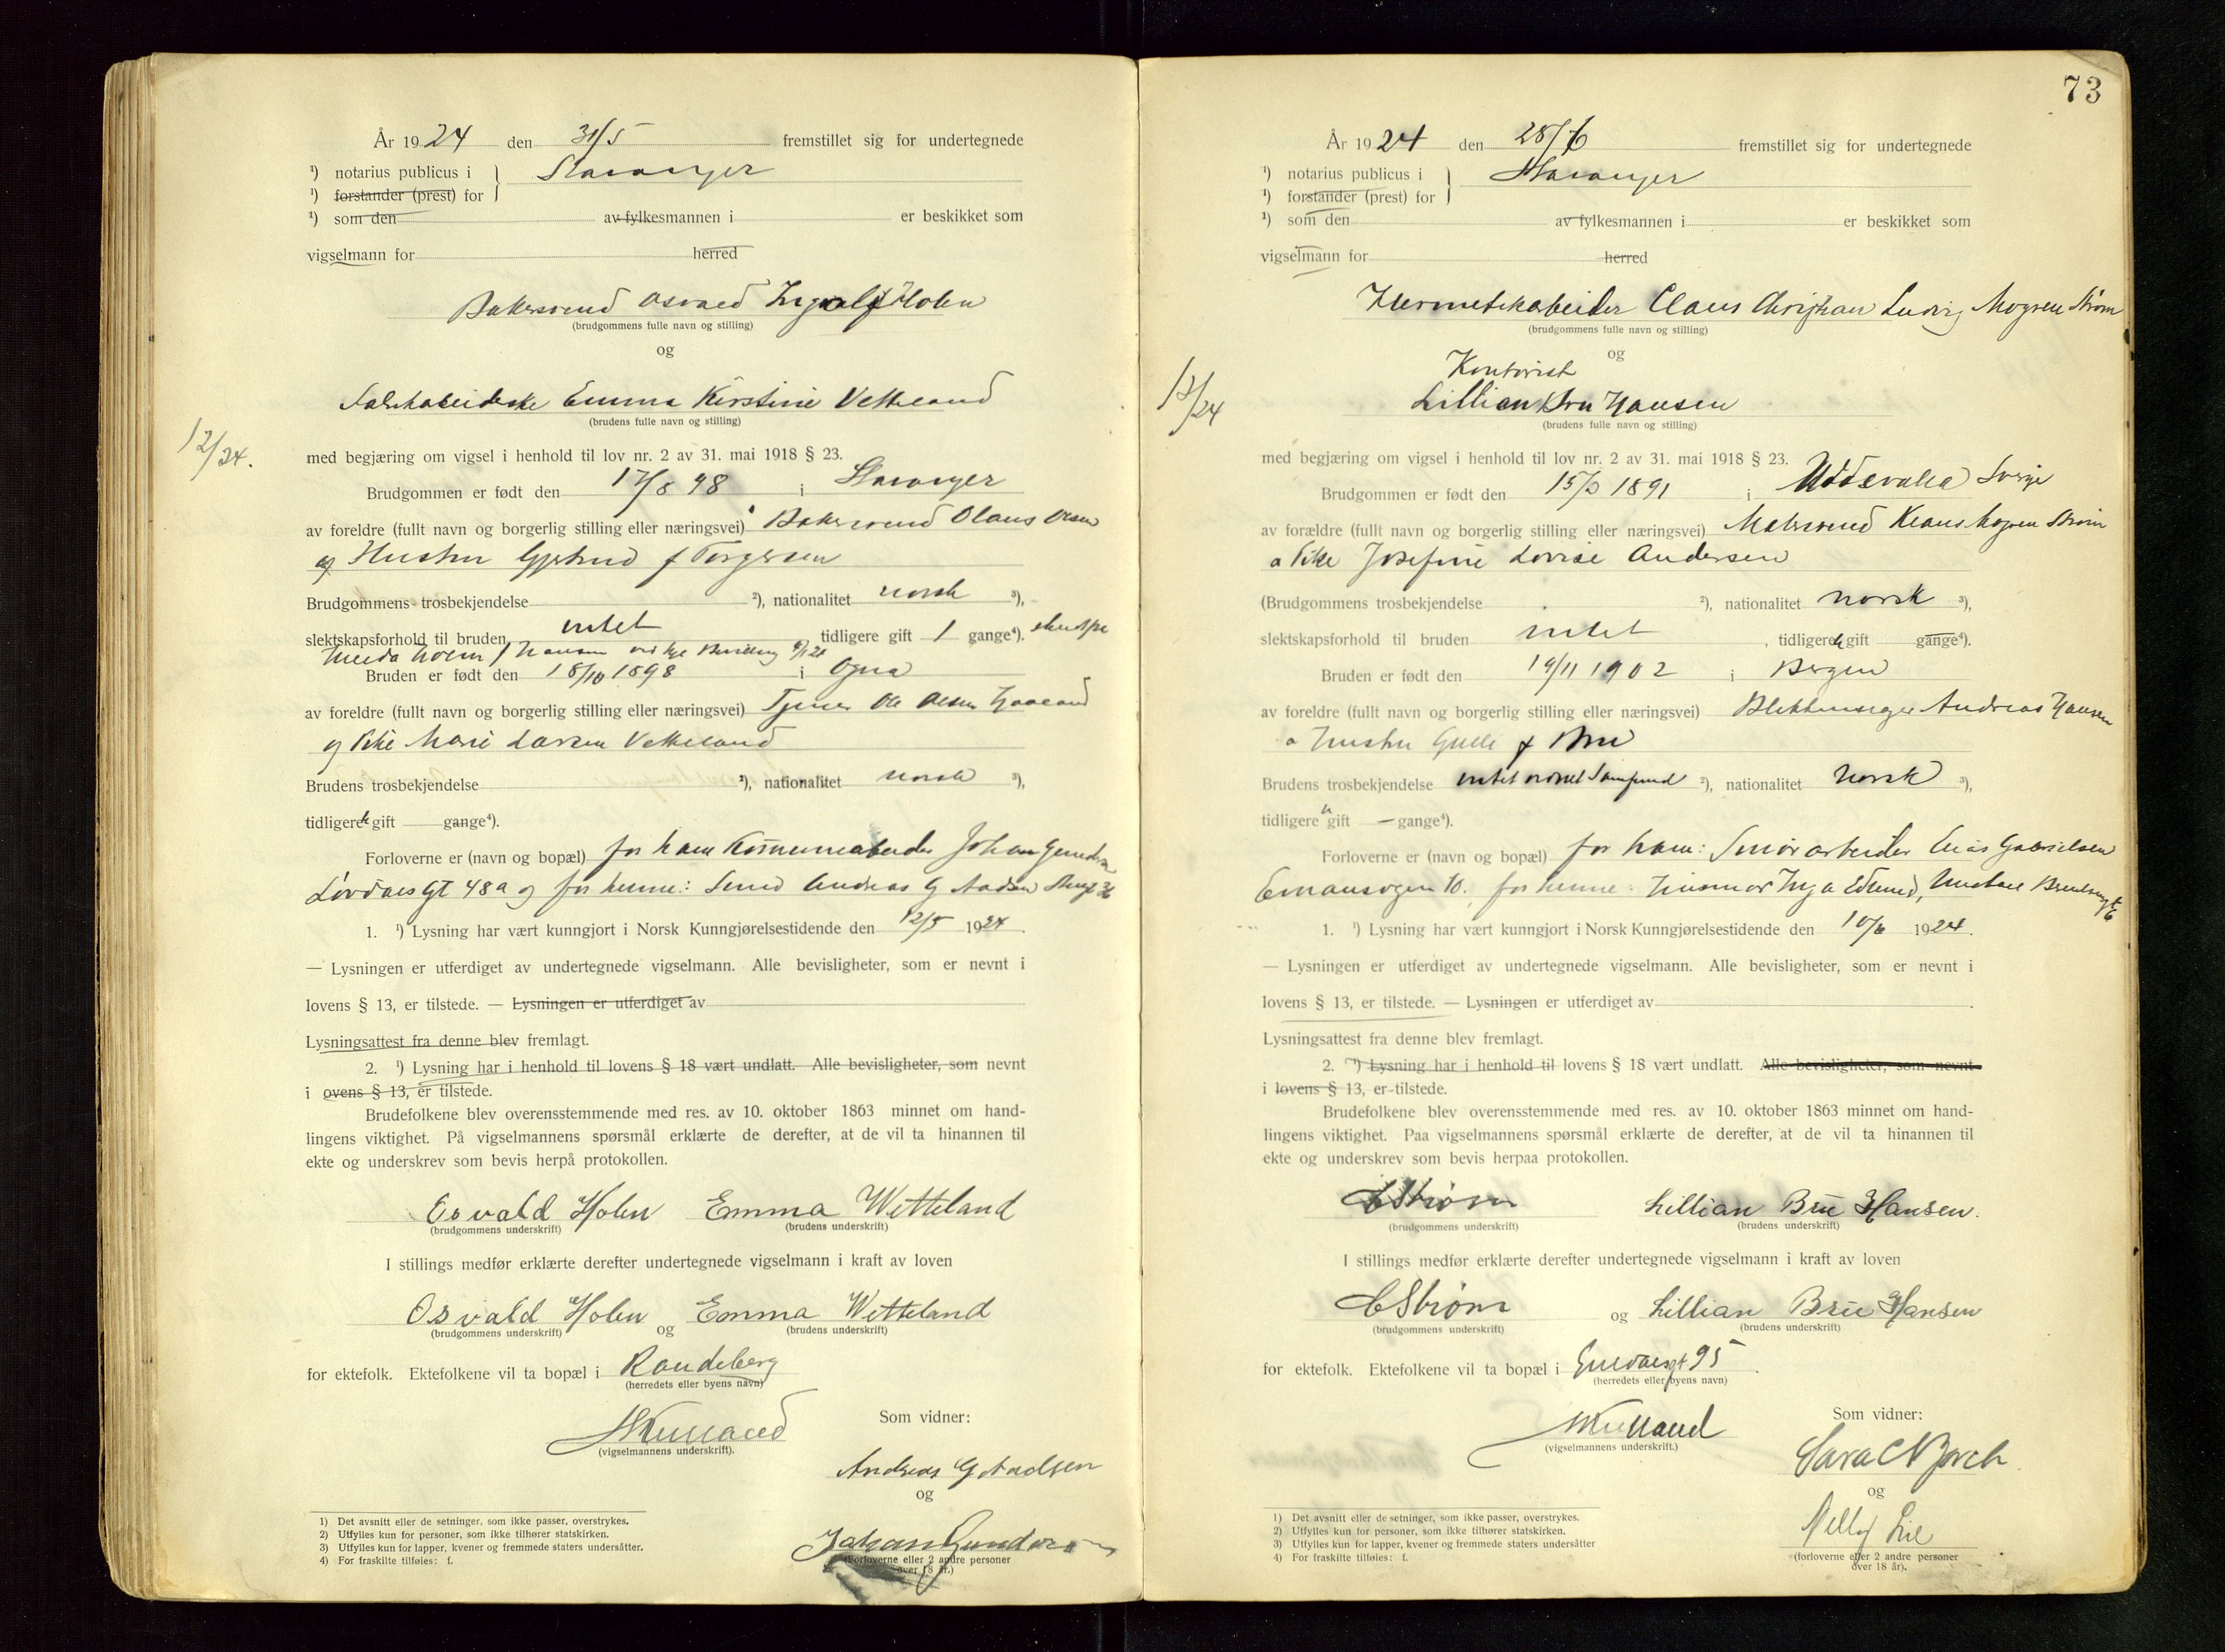 År 1924 den 31/5 fremstillet sig for undertegnede
¹) notarius publicus i } Stavanger
¹) forstander (prest) for
¹) som den av fylkesmannen i er beskikket som
vigselmann for herred
Bakersvend Osvald Ingvald Holen
(brudgommens fulle navn og stilling)
og
Emma Kirstine Vetteland
(brudens fulle navn og stilling)
12/24.
med begjæring om vigsel i henhold til lov nr. 2 av 31. mai 1918 § 23.
Brudgommen er født den 98 i Stavanger
av foreldre (fullt navn og borgerlig stilling eller næringsvei) Bakersvend Olaus Olsen
og Hustru Gjertrud f Torgersen
Brudgommens trosbekjendelse ²), nationalitet norsk ³),
slektskapsforhold til bruden intet , tidligere gift 1 gange⁴).
Bruden er født den 18/10 1898 i Ogna
av foreldre (fullt navn og borgerlig stilling eller næringsvei) Tjener Ole Olsen
og Pike Marie Larsen Vetteland
Brudens trosbekjendelse ²), nationalitet norsk ³),
tidligere gift gange⁴).
Forloverne er (navn og bopæl) for ham Kommunearbeider Johan
48a og for henne: Smed Andreas G Aadsen
1. ¹) Lysning har vært kunngjort i Norsk Kunngjørelsestidende den 12/5 1924.
— Lysningen er utferdiget av undertegnede vigselmann. Alle bevisligheter, som er nevnt i
lovens § 13, er tilstede. — Lysningen er utferdiget av
Lysningsattest fra denne blev fremlagt.
2. ¹) Lysning har i henhold til lovens § 18 vært undlatt. Alle bevisligheter, som nevnt
i ovens § 13, er tilstede.
Brudefolkene blev overensstemmende med res. av 10. oktober 1863 minnet om hand-
lingens viktighet. På vigselmannens spørsmål erklærte de derefter, at de vil ta hinannen til
ekte og underskrev som bevis herpå protokollen.
Osvald Holen Emma Witteland
(brudgommens underskrift) (brudens underskrift)
I stillings medfør erklærte derefter undertegnede vigselmann i kraft av loven
Osvald Holen og Emma Witteland
(brudgommens underskrift) (brudens underskrift)
for ektefolk. Ektefolkene vil ta bopæl i Randeberg
(herredets eller byens navn)
(vigselmannens underskrift).
Som vidner:
Andreas G Aadsen
og
Johan Gunderson
(Forloverne eller 2 andre personer
over 18 år.)
1) Det avsnitt eller de setninger, som ikke passer, overstrykes.
2) Utfylles kun for personer, som ikke tilhører statskirken.
3) Utfylles kun for lapper, kvener og fremmede staters undersåtter.
4) For fraskilte tilføies: f.
73
År 1924 den 28/6 fremstillet sig for undertegnede
¹) notarius publicus i } Stavanger
¹) forstander (prest) for
¹) som den av fylkesmannen i er beskikket som
vigselmann for herred
Hermetikarbeider Claus Christian Ludvig Mogren Strøm
(brudgommens fulle navn og stilling)
og
Kontorist
Lillian Bru Hansen
(brudens fulle navn og stilling)
13/24
med begjæring om vigsel i henhold til lov nr. 2 av 31. mai 1918 § 23.
Brudgommen er født den 1891 i Uddevalla Sverige
av forældre (fullt navn og borgerlig stilling eller næringsvei) Malersvend Klaus Mogren Strøm
o Pike Josefine Lovise Andersen
(Brudgommens trosbekjendelse ²), nationalitet norsk ³),
slektskapsforhold til bruden intet , tidligere gift gange⁴).
Bruden er født den 19/11 1902 i Bergen
av foreldre (fullt navn og borgerlig stilling eller næringsvei) Blikkenslager Andreas Hansen
o Hustru f Bru
Brudens trosbekjendelse intet Samfund ²), nationalitet Norsk ³),
tidligere gift — gange⁴).
Forloverne er (navn og bopæl) for ham: Elias Gabrielsen
10. for henne:
1. ¹) Lysning har vært kunngjort i Norsk Kunngjørelsestidende den 10/6 1924.
— Lysningen er utferdiget av undertegnede vigselmann. Alle bevisligheter, som er nevnt i
lovens § 13, er tilstede. — Lysningen er utferdiget av
Lysningsattest fra denne blev fremlagt.
2. ¹) Lysning har i henhold til lovens § 18 vært undlatt. Alle bevisligheter, som nevnt
i lovens § 13, er tilstede.
Brudefolkene blev overensstemmende med res. av 10. oktober 1863 minnet om hand-
lingens viktighet. Paa vigselmannens spørsmål erklærte de derefter, at de vil ta hinannen til
ekte og underskrev som bevis herpaa protokollen.
CStrøm Lillian Brü Hansen.
(brudgommens underskrift) (brudens underskrift)
I stillings medfør erklærte derefter undertegnede vigselmann i kraft av loven
CStrøm og Lillian Brü Hansen
(brudgommens underskrift) (brudens underskrift)
for ektefolk. Ektefolkene vil ta bopæl i 95.
(herredets eller byens navn)
(vigselmannens underskrift.)
Som vidner:
Sara
og
Nelly Lie
(forloverne eller 2 andre personer
over 18 år).
1) Det avsnitt eller de setninger, som ikke passer, overstrykes.
2) Utfylles kun for personer, som ikke tilhører statskirken.
3) Utfylles kun for lapper, kvener og fremmede staters undersåtter
4) For fraskilte tilføies: f.